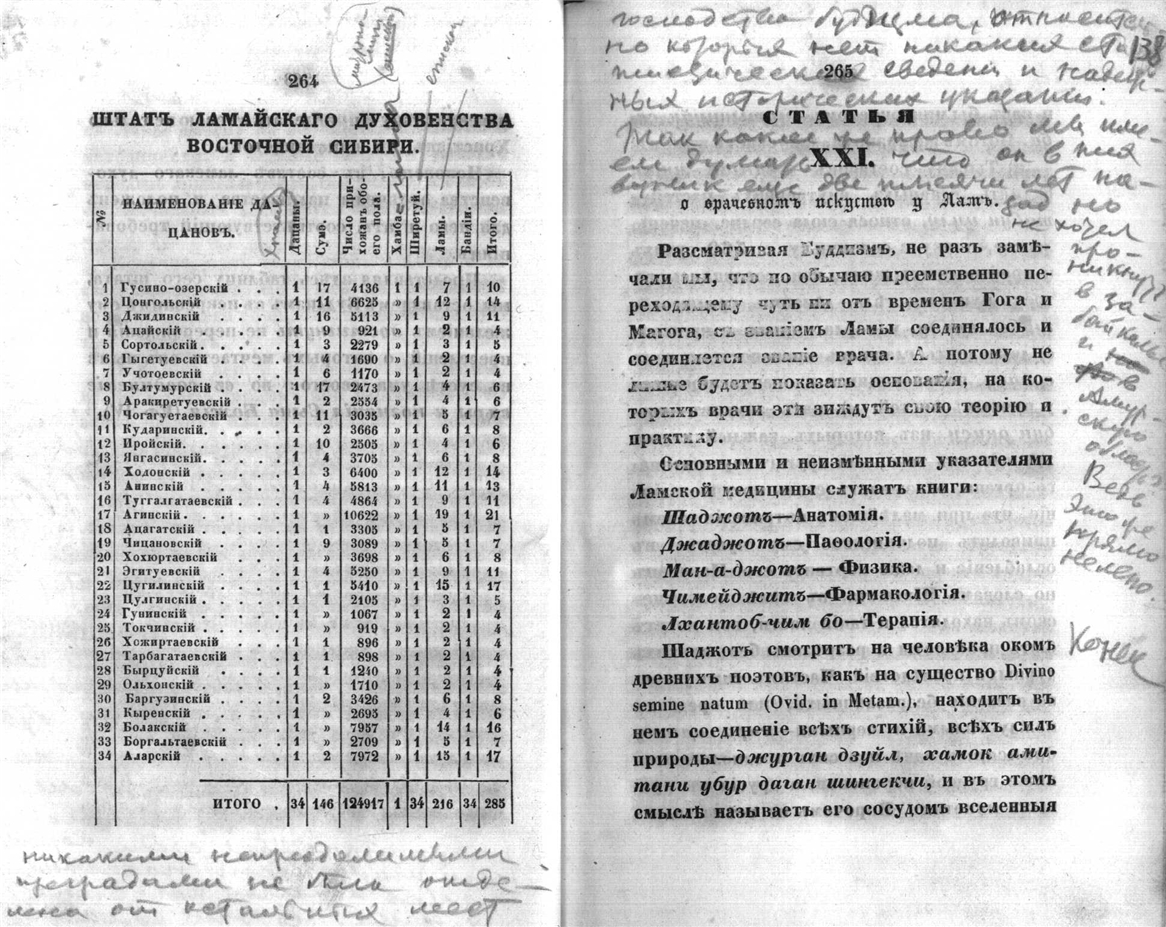 264
ШТАТЪ ЛАМАЙСКАГО ДУХОВЕНСТВА
ВОСТОЧНОЙ СИБИРИ.
№ НАИМЕНОВАНІЕ ДАЦАНОВЪ. Дацаны. Сумэ. Число прихожан обоего пола. Хамба Ширетуй. Ламы. Бандіи. Итого.
1 Гусино-озерскій . . . 1 17 4136 1 1 7 1 10
2 Цонгольскій . . . 1 11 6625 » 1 12 1 14
3 Джидинскій . . . 1 16 5113 » 1 9 1 11
4 Ацайскій . . . 1 9 921 » 1 2 1 4
5 Сортольскій . . . 1 3 2279 » 1 3 1 5
6 Гыгетуевскій . . . 1 4 1690 » 1 2 1 4
7 Учотоевскій . . . 1 6 1170 » 1 2 1 4
8 Бултумурскій . . . 1 17 2473 » 1 4 1 6
9 Аракиретуевскій . . 1 2 2554 » 1 4 1 6
10 Чогагуетаевскій . . 1 11 3035 » 1 5 1 7
11 Кударинскій. . . . 1 2 3666 » 1 6 1 8
12 Иройскій. . . . 1 10 2505 » 1 4 1 6
13 Янгасинскій. . . . 1 4 3705 » 1 6 1 8
14 Холонскій . . . . 1 3 6400 » 1 12 1 14
15 Анинскій . . . . 1 4 5813 » 1 11 1 13
16 Туггалгатаевскій . . 1 4 4864 » 1 9 1 11
17 Агинскій. . . . . 1 » 10622 » 1 19 1 21
18 Ацагатскій . . . . 1 1 3305 » 1 5 1 7
19 Чицановскій . . . 1 9 3089 » 1 5 1 7
20 Хохюртаевскій . . 1 » 3698 » 1 6 1 8
21 Эгитуевскій . . . 1 4 5250 » 1 9 1 11
22 Цугилинскій . . . 1 1 5410 » 1 15 1 17
23 Цулгинскій . . . . 1 1 2105 » 1 3 1 5
24 Гунинскій . . . . 1 » 1067 » 1 2 1 4
25 Токчинскій . . . . 1 » 919 » 1 2 1 4
26 Хожиртаевскій . . . 1 1 896 » 1 2 1 4
27 Тарбагатаевскій . . 1 1 898 » 1 2 1 4
28 Бырцуйскій . . . 1 1 1240 » 1 2 1 4
29 Ольхонскій . . . . 1 » 1710 » 1 2 1 4
30 Баргузинскій . . . 1 2 3426 » 1 6 1 8
31 Кыренскій . . . . 1 » 2695 » 1 4 1 6
32 Болакскій . . . . 1 » 7957 » 1 14 1 16
33 Боргальтаевскій . . 1 » 2709 » 1 5 1 7
34 Аларскій . . . . 1 2 7972 » 1 15 1 17
ИТОГО . 34 146 124917 1 34 216 34 285
никакими непреодолимыми
преградами не была отде-
лена от остальных мест
господства буддизма, относитель
но которых нет никаких ста
138
тистических сведений и надеж-
265
ных исторических указаний.
СТАТЬЯ
Так какое же право мы име-
XXI.
ем думать что он в них
возник еще две тысячи лет на-
зад но
о врачевномъ искуствѣ у Ламъ.
не хочел
про-
никнуть
в За-
байкалье
и
в
Амур-
скую
область?
Ведь
это же
прямо
нелепо.
Конец
Разсматривая Буддизмъ, не разъ замѣ-
чали мы, что по обычаю преемственно пе-
реходящему чуть ни отъ временъ Гога и
Магога, съ званіемъ Ламы соединялось и
соединяется званіе врача. А потому не
лишне будетъ показать основанія, на ко-
торыхъ врачи эти зиждутъ свою теорію и
практику.
Основными и неизмѣнными указателями
Ламской медицины служатъ книги:
Шаджотъ—Анатомія.
Джаджотъ—Паѳологія.
Ман-а-джотъ — Физика.
Чимейджитъ—Фармакологія.
Лхантоб-чим бо—Терапія.
Шаджотъ смотритъ на человѣка окомъ
древнихъ поэтовъ, какъ на существо Divino
semine natum (Ovid. in Metam.), находитъ въ
немъ соединеніе всѣхъ стихій, всѣхъ силъ
природы—джурган дзуйл, хамок ами-
тани убур даган шингекчи, и въ этомъ
смыслѣ называетъ его сосудомъ вселенныя